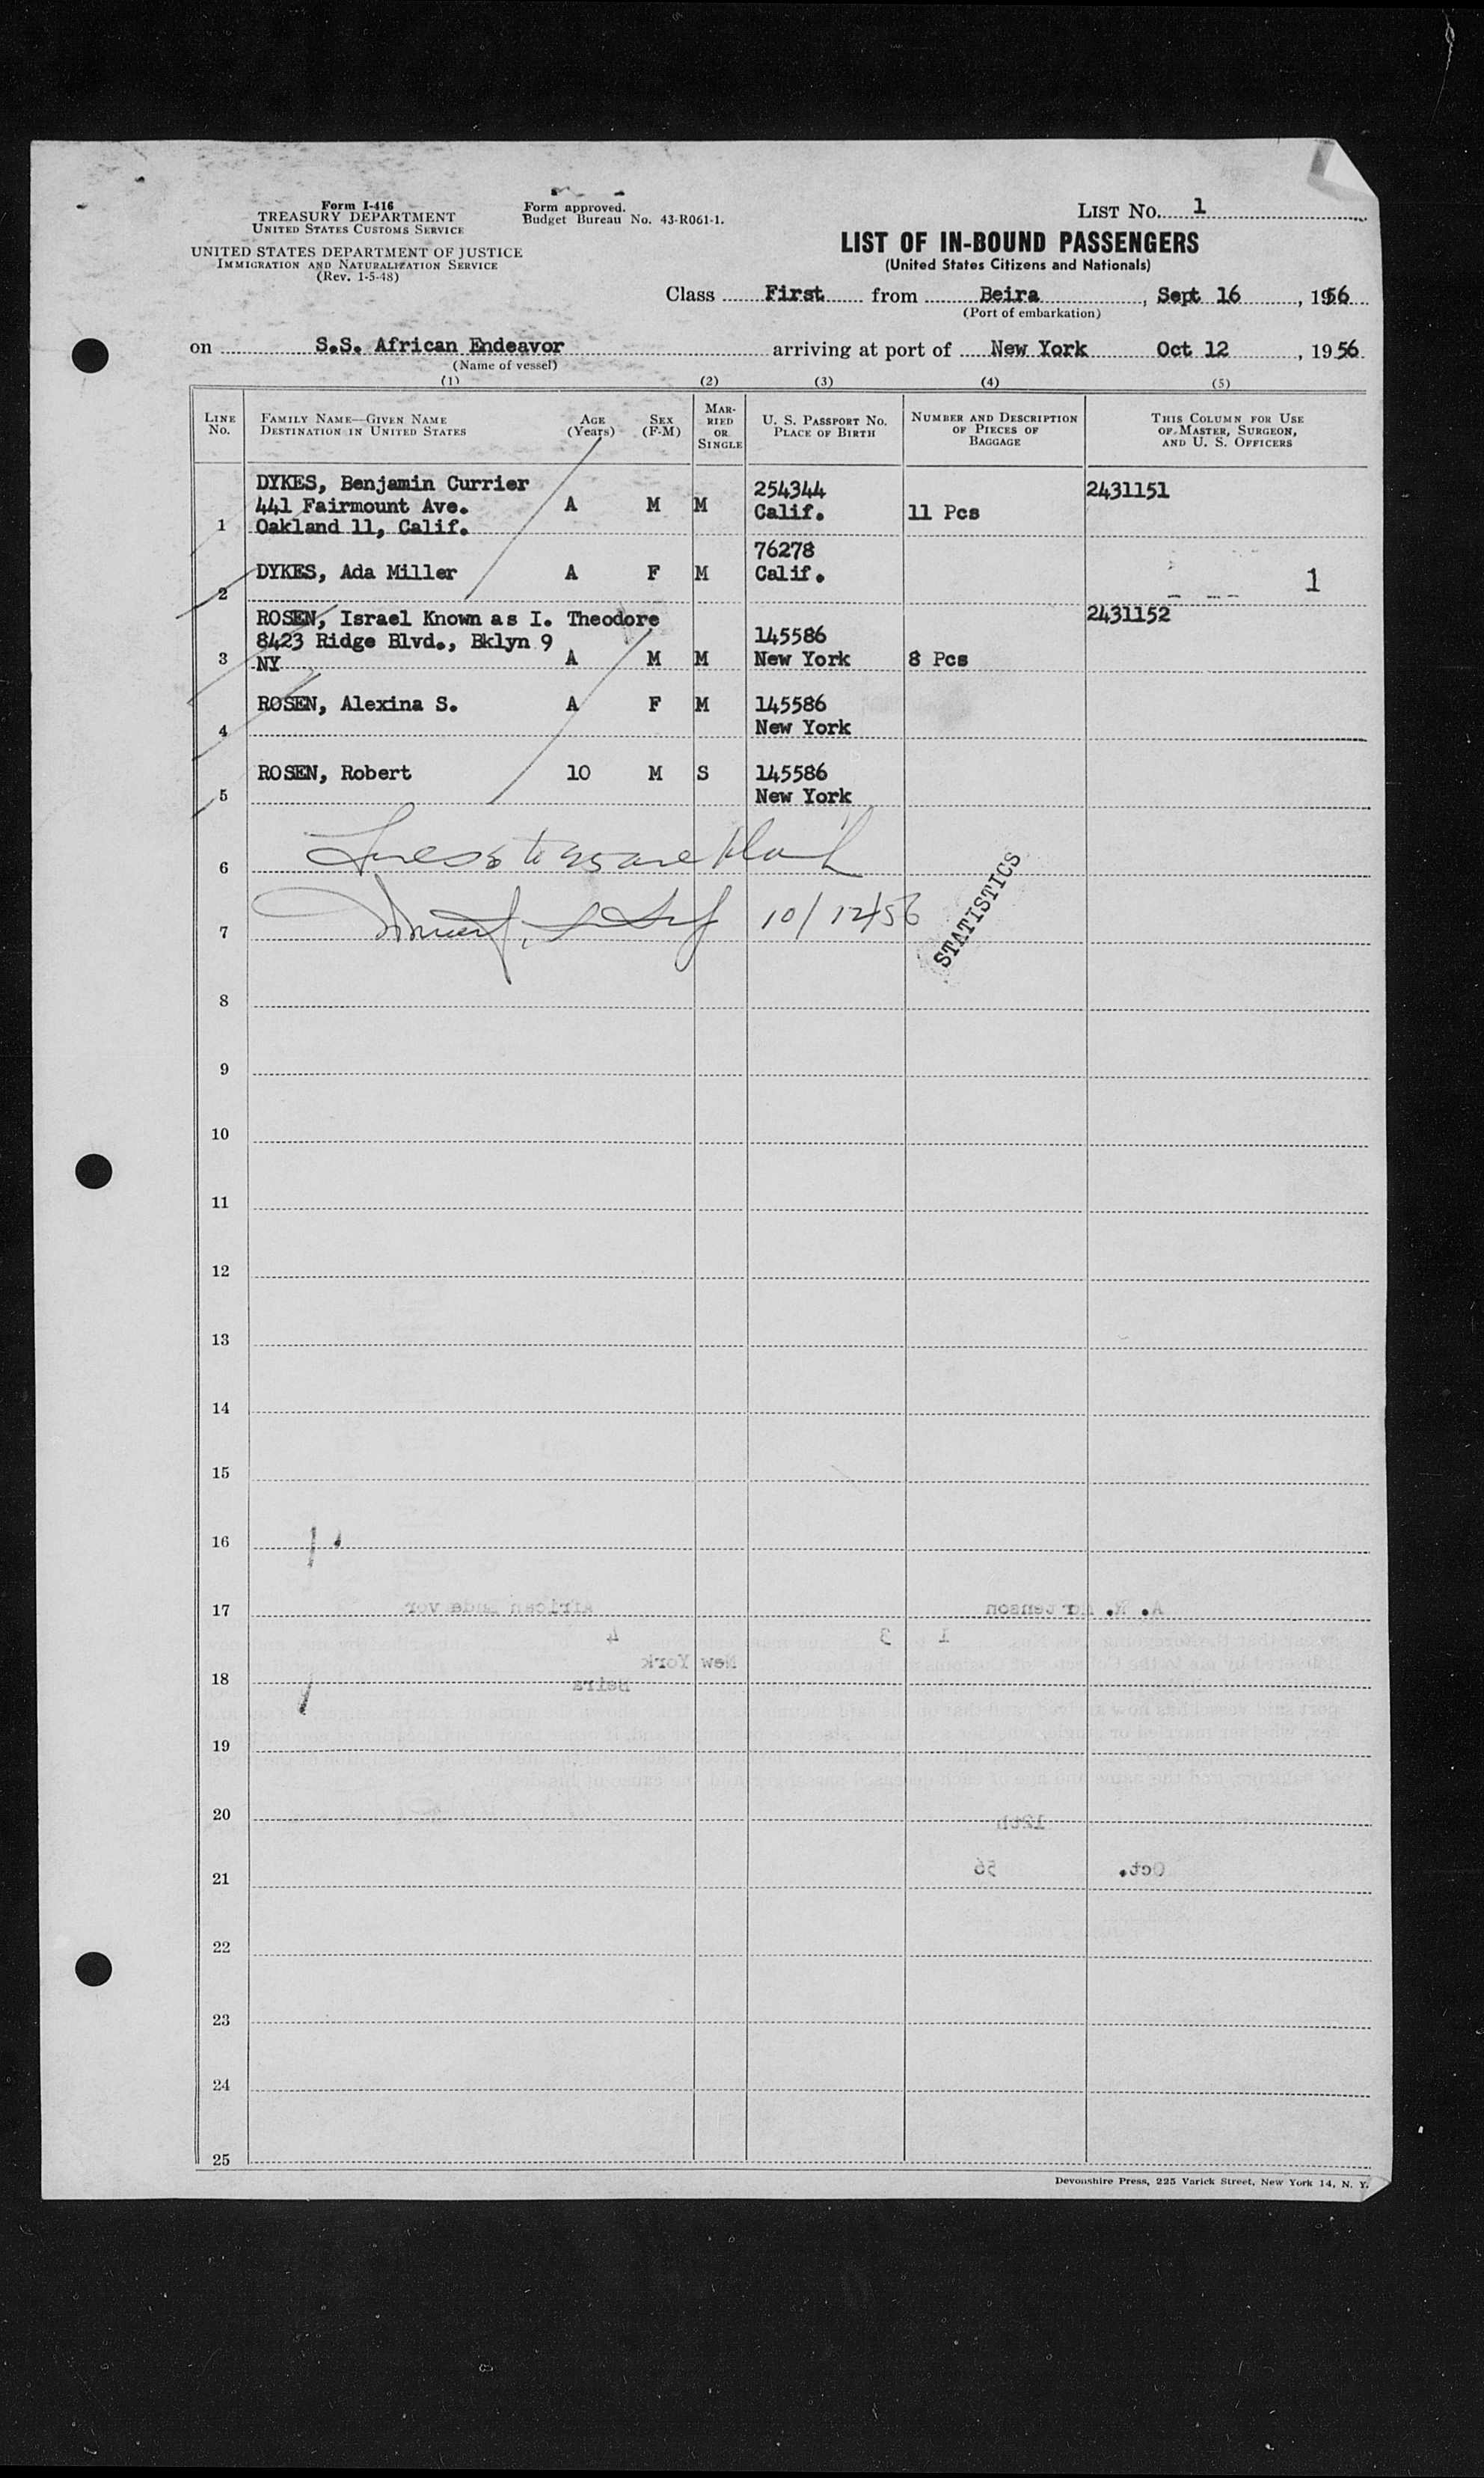 Form I-416
TREASURY DEPARTMENT
UNITED STATES CUSTOMS SERVICE
UNITED STATES DEPARTMENT OF JUSTICE
IMMIGRATION AND NATURALIZATION SERVICE
(Rev. 1-5-48)
Form approved.
Budget Bureau No. 43-R061-1.
LIST No. 1
LIST OF IN-BOUND PASSENGERS
(United States Citizens and Nationals)
Class First from Beira, Sept 16, 1956
(Port of embarkation)
on S.S. African Endeavor arriving at port of New York Oct 12, 1956
(Name of vessel)
(1) (2) (3) (4) (5)
LINE No.
FAMILY NAME—GIVEN NAME
DESTINATION IN UNITED STATES
AGE (Years)
SEX (F-M)
MARRIED OR SINGLE
U. S. PASSPORT NO.
PLACE OF BIRTH
NUMBER AND DESCRIPTION OF PIECES OF BAGGAGE
THIS COLUMN FOR USE OF MASTER, SURGEON, AND U. S. OFFICERS
DYKES, Benjamin Currier 254344 2431151
441 Fairmount Ave. A M M Calif. 11 Pcs
1 Oakland 11, Calif.
76278
DYKES, Ada Miller A F M Calif. 1
2
ROSEN, Israel Known as I. Theodore 2431152
8423 Ridge Blvd., Bklyn 9 145586
3 NY A M M New York 8 Pcs
ROSEN, Alexina S. A F M 145586
4 New York
ROSEN, Robert 10 M S 145586
5 New York
6 Lines 6 to 25 are blank
7 10/12/56
STATISTICS
8
9
10
11
12
13
14
15
16
17 African Endeavor A. N. Mortenson
4 3 1
New York
18 Beira
19
20 12th
21 56 Oct.
22
23
24
25
Devonshire Press, 225 Varick Street, New York 14, N. Y.